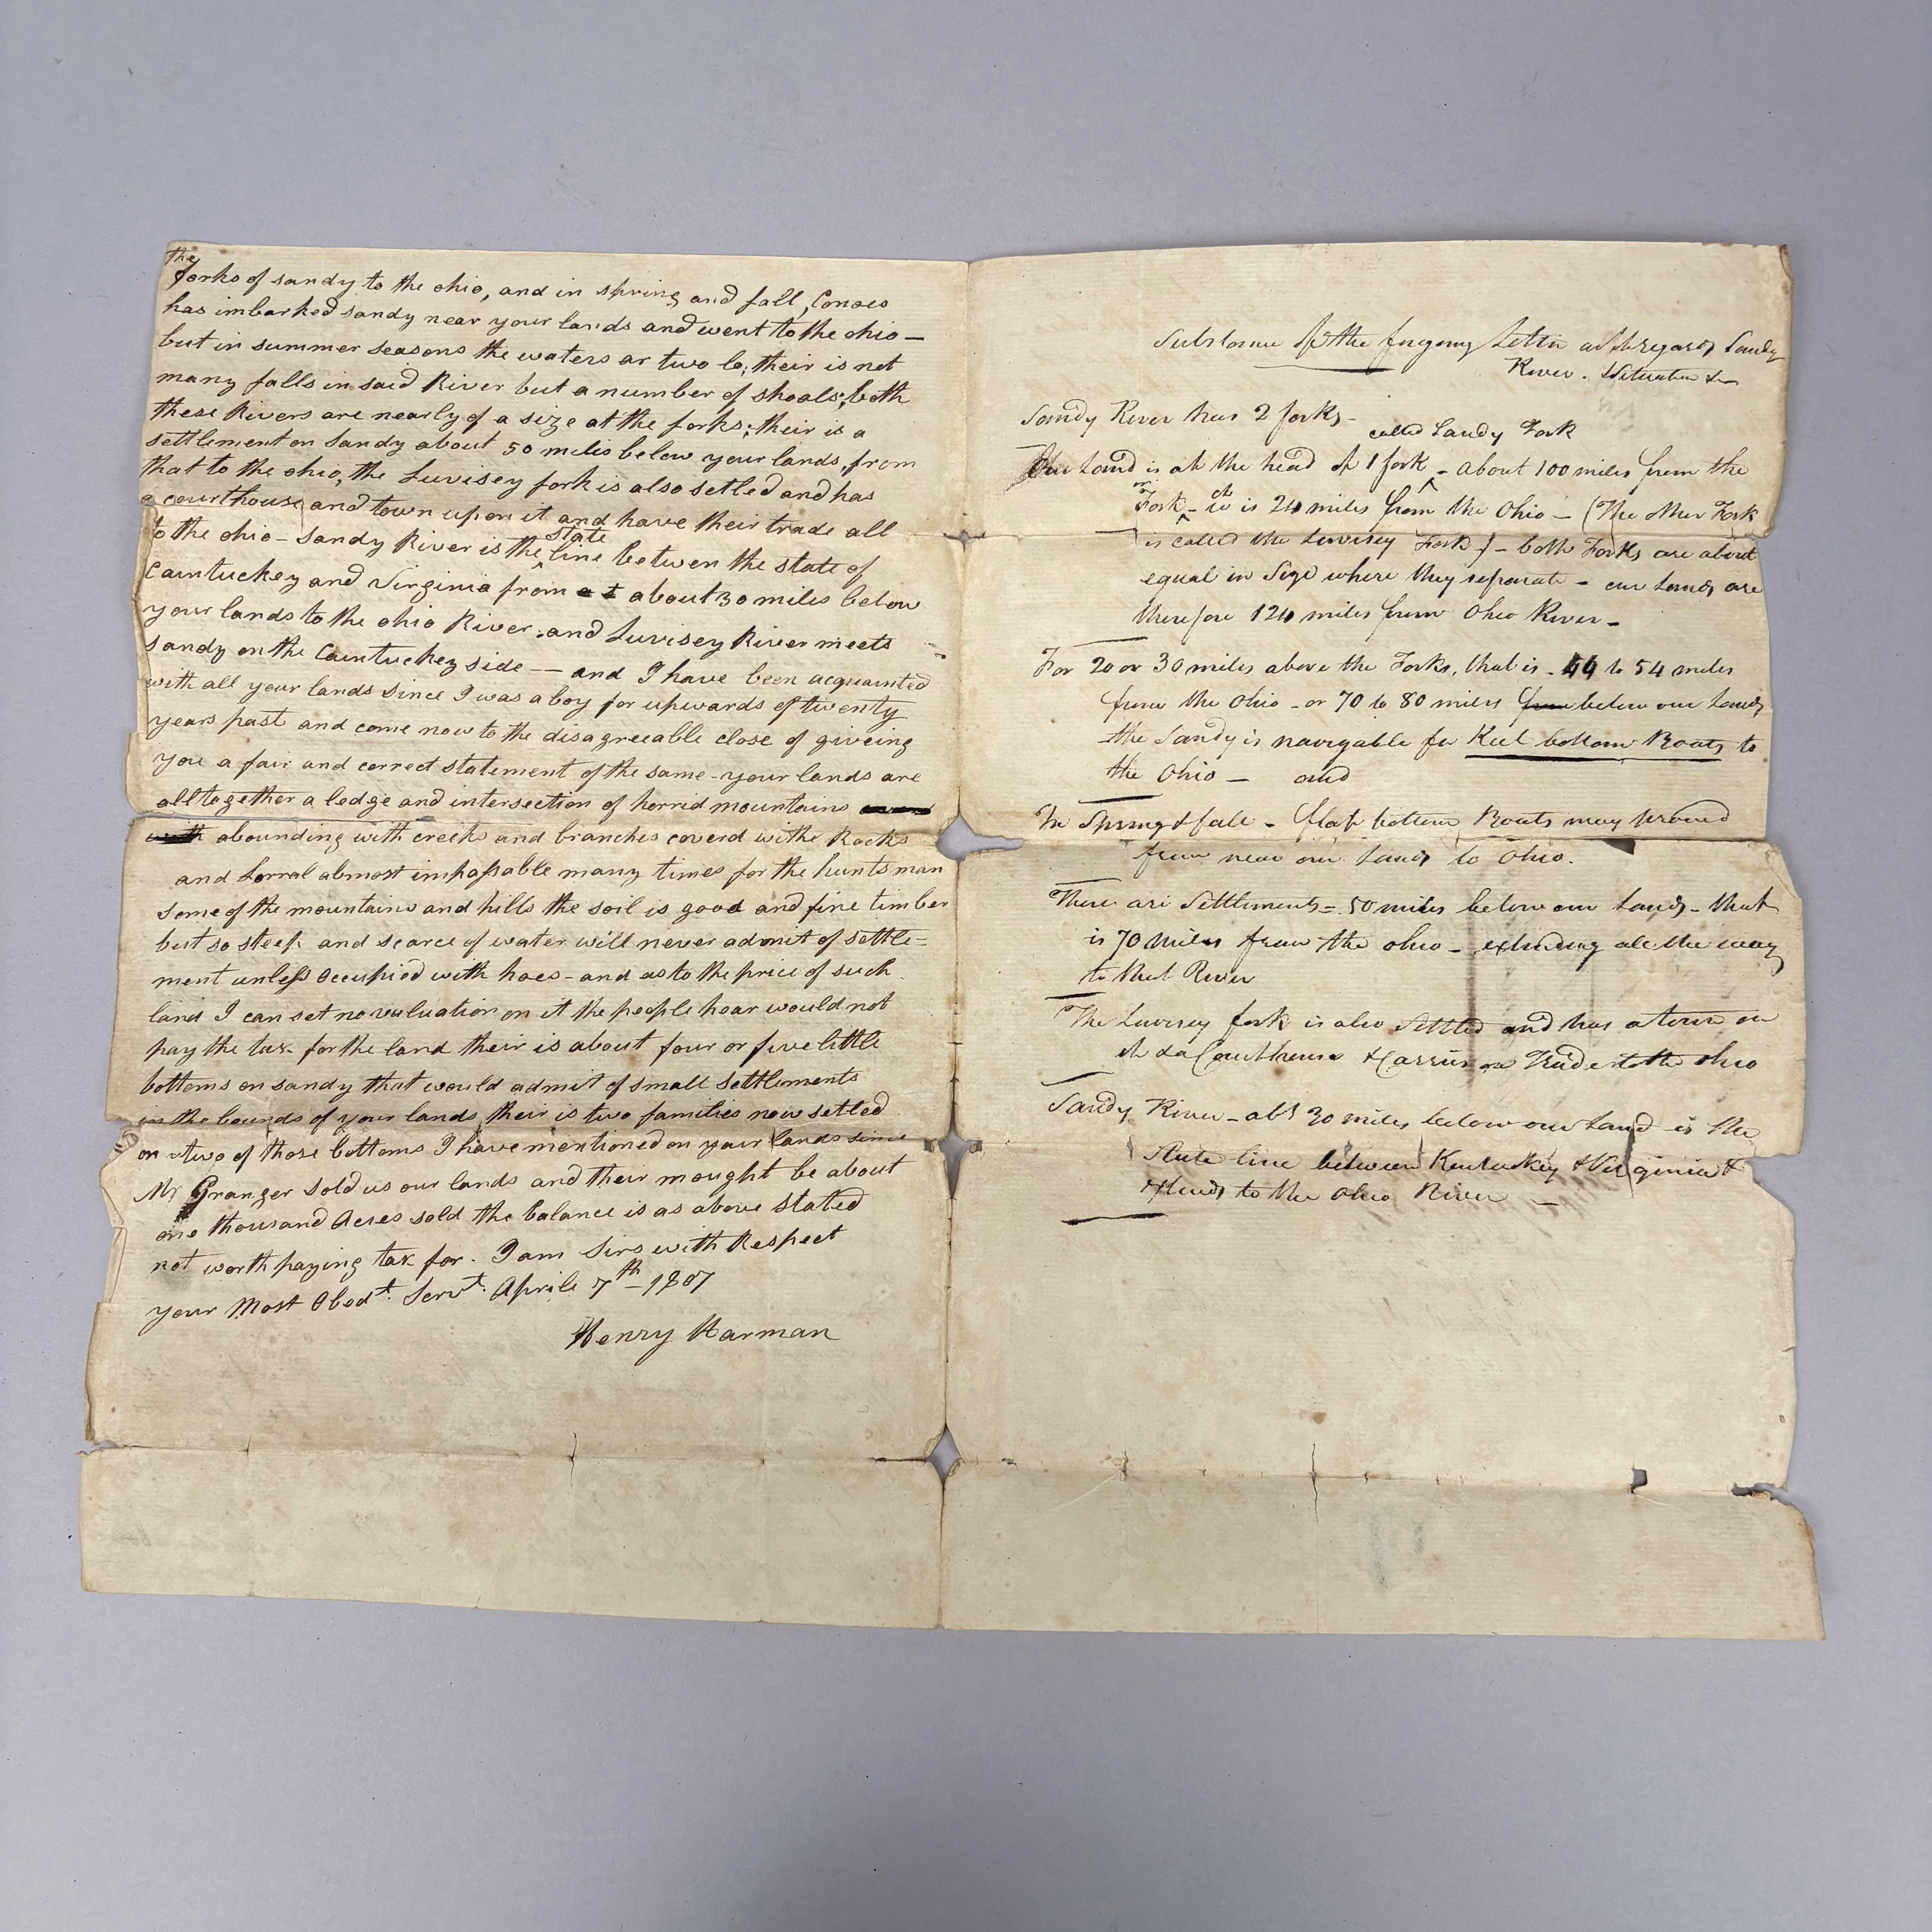 the
forks of sandy to the ohio, and in spring and fall, Conoes
has imbarked sandy near your lands and went to the ohio —
but in summer seasons the waters ar two lo; their is not
many falls in said River but a number of shoals; both
these Rivers are nearly of a size at the forks; their is a
settlement on Sandy about 50 miles below your lands, from
that to the ohio, the Luvisey fork is also setled and has
a courthouse and town upon it and have their trade all
to the ohio — Sandy River is the state line betwen the state of
Caintuckey and Virginia from about 30 miles below
your lands to the ohio River, and Luvisey River meets
sandy on the Caintuckey side — and I have been acquainted
with all your lands since I was a boy for upwards of twenty
years past and come now to the disagreeable close of giveing
you a fair and correct statement of the same - your lands are
alltogether a ledge and intersection of horrid mountains
with abounding with creeks and branches coverd withe Rocks
and Lorral abmost impassable many times for the huntsman
some of the mountains and hills the soil is good and fine timber
but so steep and scarce of water will never admit of settle=
ment unless Occupied with hoes - and as to the price of such
land I can set no valuation on it the people hear would not
pay the tax for the land their is about four or five little
bottoms on sandy that would admit of small settlements
in the bounds of your lands their is two families now settled
on two of those bottoms I have mentioned on your lands since
Mr Granger sold us our lands and their mought be about
one thousand Acres sold the balance is as above stated
not worth paying tax for. I am Sirs with Respect
your Most Obedt. Servt. Aprile 7th - 1807
Henry Harman
Substance of the foregoing Letter as it regards Sandy
River. Situation &c
Sandy River has 2 forks -
called Sandy Fork
Our Land is at the head of 1 fork - about 100 miles from the
Fork - is 24 miles from the Ohio - (The other Fork
is called the Luvisey Fork) - both Forks are about
equal in Size where they separate - our Lands are
therefore 124 miles from Ohio River -
For 20 or 30 miles above the Forks, that is - 44 to 54 miles
from the Ohio - or 70 to 80 miles from below our Lands
the Sandy is navigable for Keel bottom Boats to
the Ohio - and
In Spring & fall - flat bottom Boats may proceed
from near our Lands to Ohio.
There are Settlements = 50 miles below our Lands - that
is 70 miles from the ohio - extending all the way
to that River
The Luvisey fork is also Settled and has a town on
it & a Courthouse & Carries on Trade to the ohio
Sandy River - abt 30 miles below our Land is the
State line between Kentuckey & Virginia &
extends to the Ohio River -